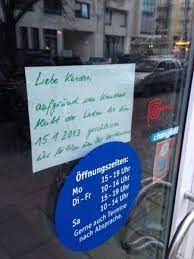 Liebe Kunden,
aufgrund von Krankheit
bleibt der Laden bis zum
15.1.2013 geschlossen
Wir bitten um Verständnis
Öffnungszeiten:
Mo 15 - 19 Uhr
Di - Fr 10 - 14 Uhr
15 - 19 Uhr
Sa 10 - 14 Uhr
Gerne auch Termine
nach Absprache.